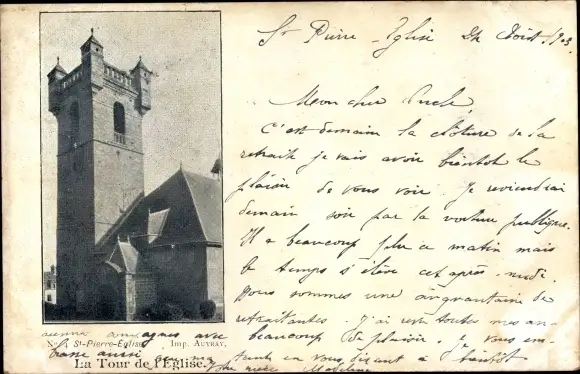 St Pierre-Eglise 24 Août 1903
Mon cher Oncle,
C'est demain la clôture de la
retraite je vais avoir bientôt le
plaisir de vous voir. Je reviendrai
demain soir par la voiture publique.
Il a beaucoup plu ce matin mais
le temps s'élève cet après-midi.
Nous sommes une cinquantaine de
retraitantes. J'ai revu toutes mes an-
ciennes compagnes avec beaucoup de plaisir. Je vous em-
brasse aussi que ma tante en vous disant à bientôt
Madeleine
St-Pierre-Eglise Imp. AUVRAY,
La Tour de l'Eglise.